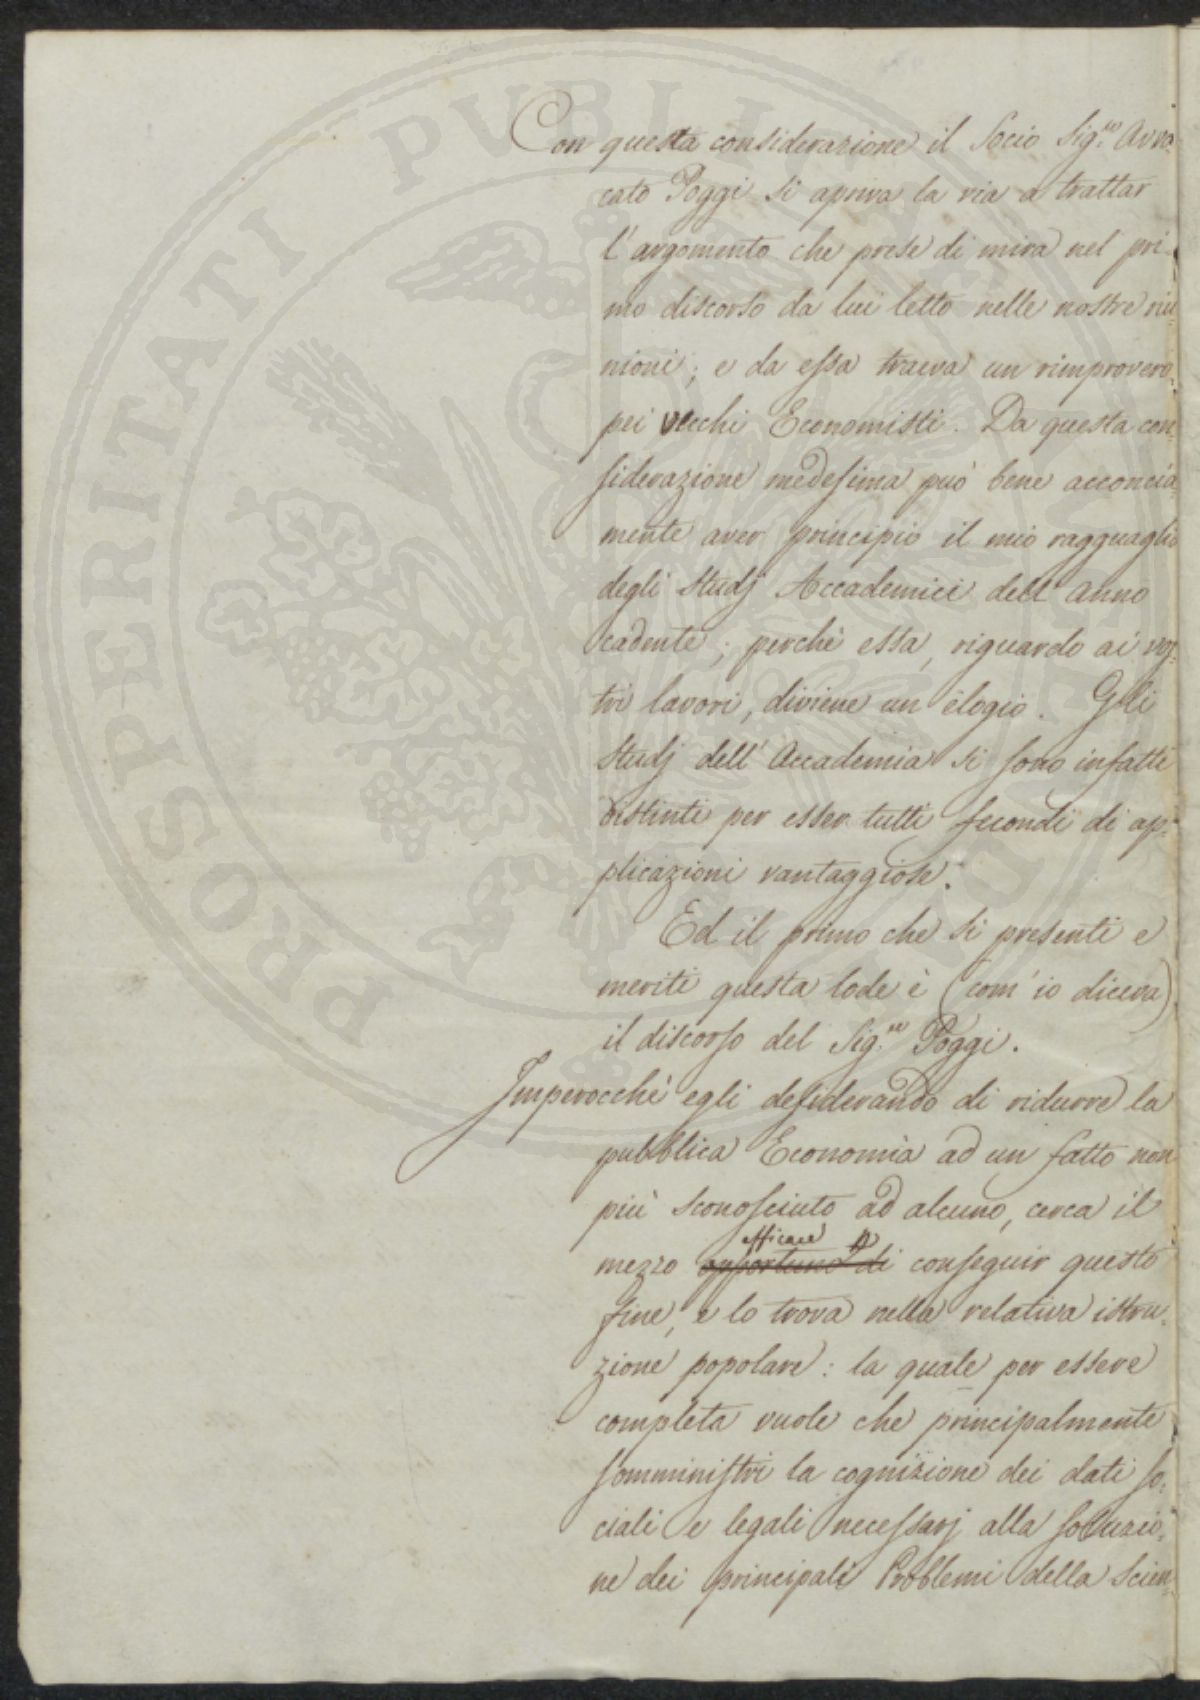 Con questa considerazione il Socio Sig.re Avvo-
cato Poggi si apriva la via a trattar
l'argomento che prese di mira nel pri-
mo discorso da lui letto nelle nostre riu-
nioni; e da essa traeva un rimprovero
pei vecchi Economisti. Da questa con-
siderazione medesima può bene acconcia-
mente aver principio il mio ragguaglio
degli Studj Accademici dell'anno
cadente; perchè essa, riguardo ai vos-
tri lavori, diviene un elogio. Gli
Studj dell'Accademia si sono infatti
distinti per esser tutti fecondi di ap-
plicazioni vantaggiose.
Ed il primo che si presenti e
meriti questa lode è (com'io diceva)
il discorso del Sig.re Poggi.
Imperocchè egli desiderando di ridurre la
pubblica Economia ad un fatto non
più sconosciuto ad alcuno, cerca il
efficace a
mezzo opportuno di conseguir questo
fine, e lo trova nella relativa istru-
zione popolare: la quale per essere
completa vuole che principalmente
somministri la cognizione dei dati so-
ciali e legali necessarj alla soluzio-
ne dei principali Problemi della Scien-
PROSPERITATI PUBLICAE